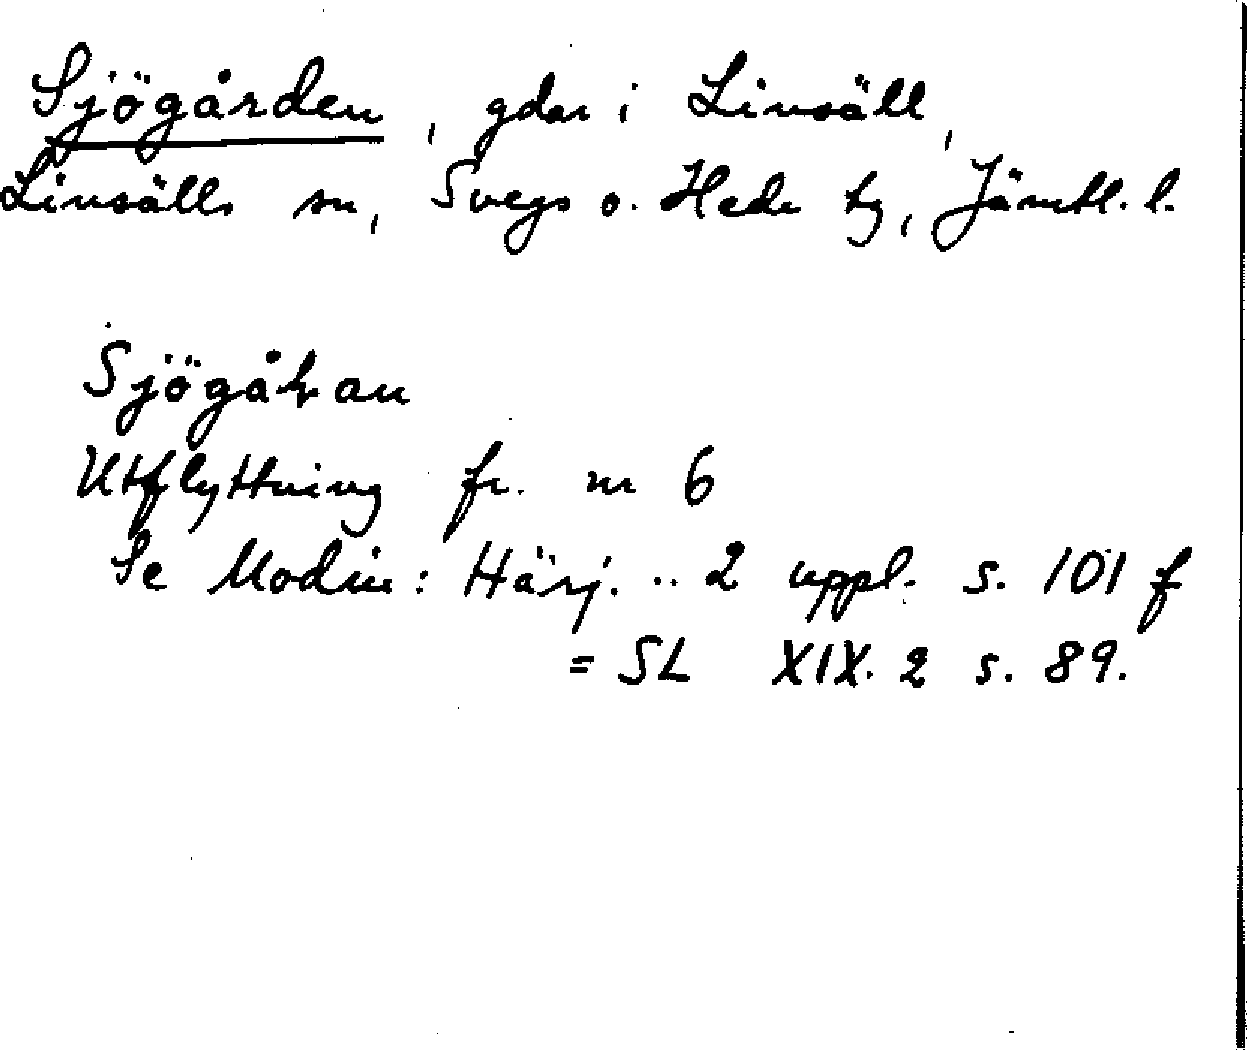 Sjögården, gdar i Linsäll,
Linsälls sn, Svegs o. Hede tg, Jämtl. l.
Sjögåɽan
Utflyttning fr. nr 6
Se Modin: Härj. .. 2 uppl. s. 101 f
= SL XIX. 2 s. 89.